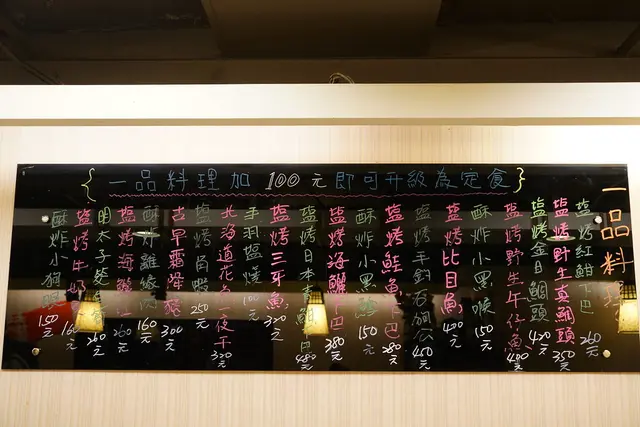 一品料理加100元即可升級為定食
一品料理
塩烤紅魽下巴 260元
塩烤野生真鯛頭 350元
塩烤金目鯛頭 420元
塩烤野生午仔魚 400元
酥炸小黑喉 150元
塩烤比目魚 400元
塩烤手釣石狗公 450元
塩烤鮭魚下巴 280元
酥炸小黑 150元
塩烤海鱺下巴 380元
塩烤日本青 480元
塩烤三牙魚 320元
手羽塩燒 100元
北海道花 一夜干 320元
塩烤角蝦 250元
古早霜降豬 300元
酥炸雞 肉 160元
塩烤海 260元
明太子 260元
塩烤牛 160元
酥炸小 150元